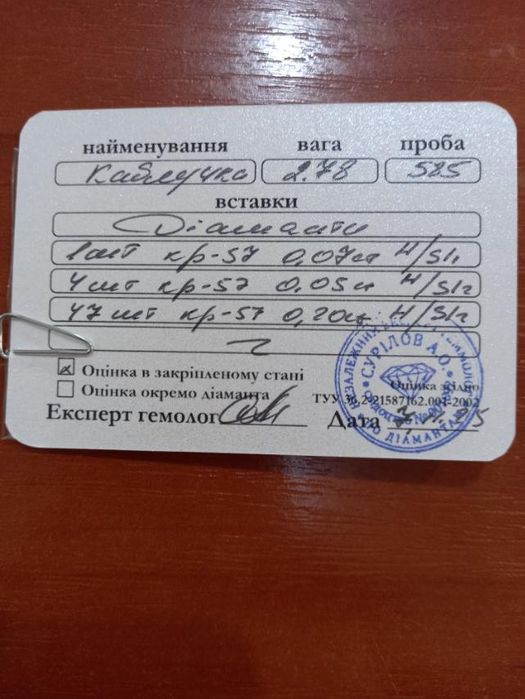 найменування вага проба
Каблучка 2.78 585
вставки
Діаманти
1шт кр-57 0,07ct H/SI1
4шт кр-57 0,05ct H/SI2
47шт кр-57 0,20ct H/SI2
Оцінка в закріпленому стані
Оцінка окремо діаманта
Оцінка згідно
ТУУ 36.2-21587162.001-2002
Експерт гемолог Дата
СУРІЛОВ А.О.